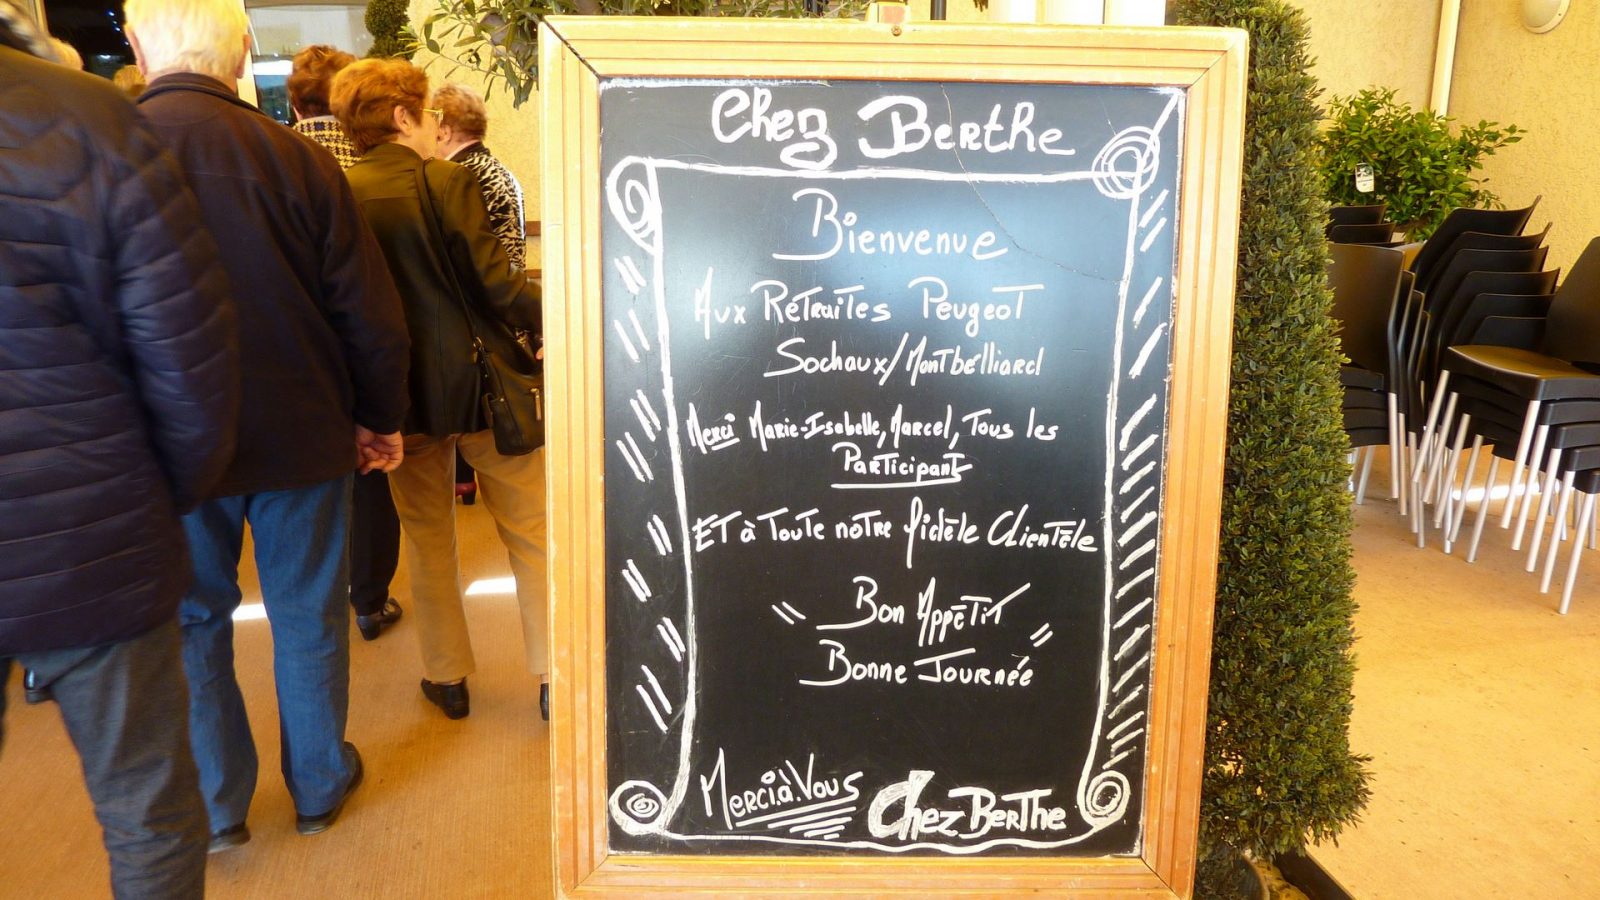 Chez Berthe
Bienvenue
Aux Retraites Peugeot
Sochaux/Montbélliard
Merci Marie-Isabelle, Marcel, Tous les
Participants
Et à Toute notre fidèle Clientèle
Bon Appétit
Bonne Journée
Merci.à.Vous Chez Berthe